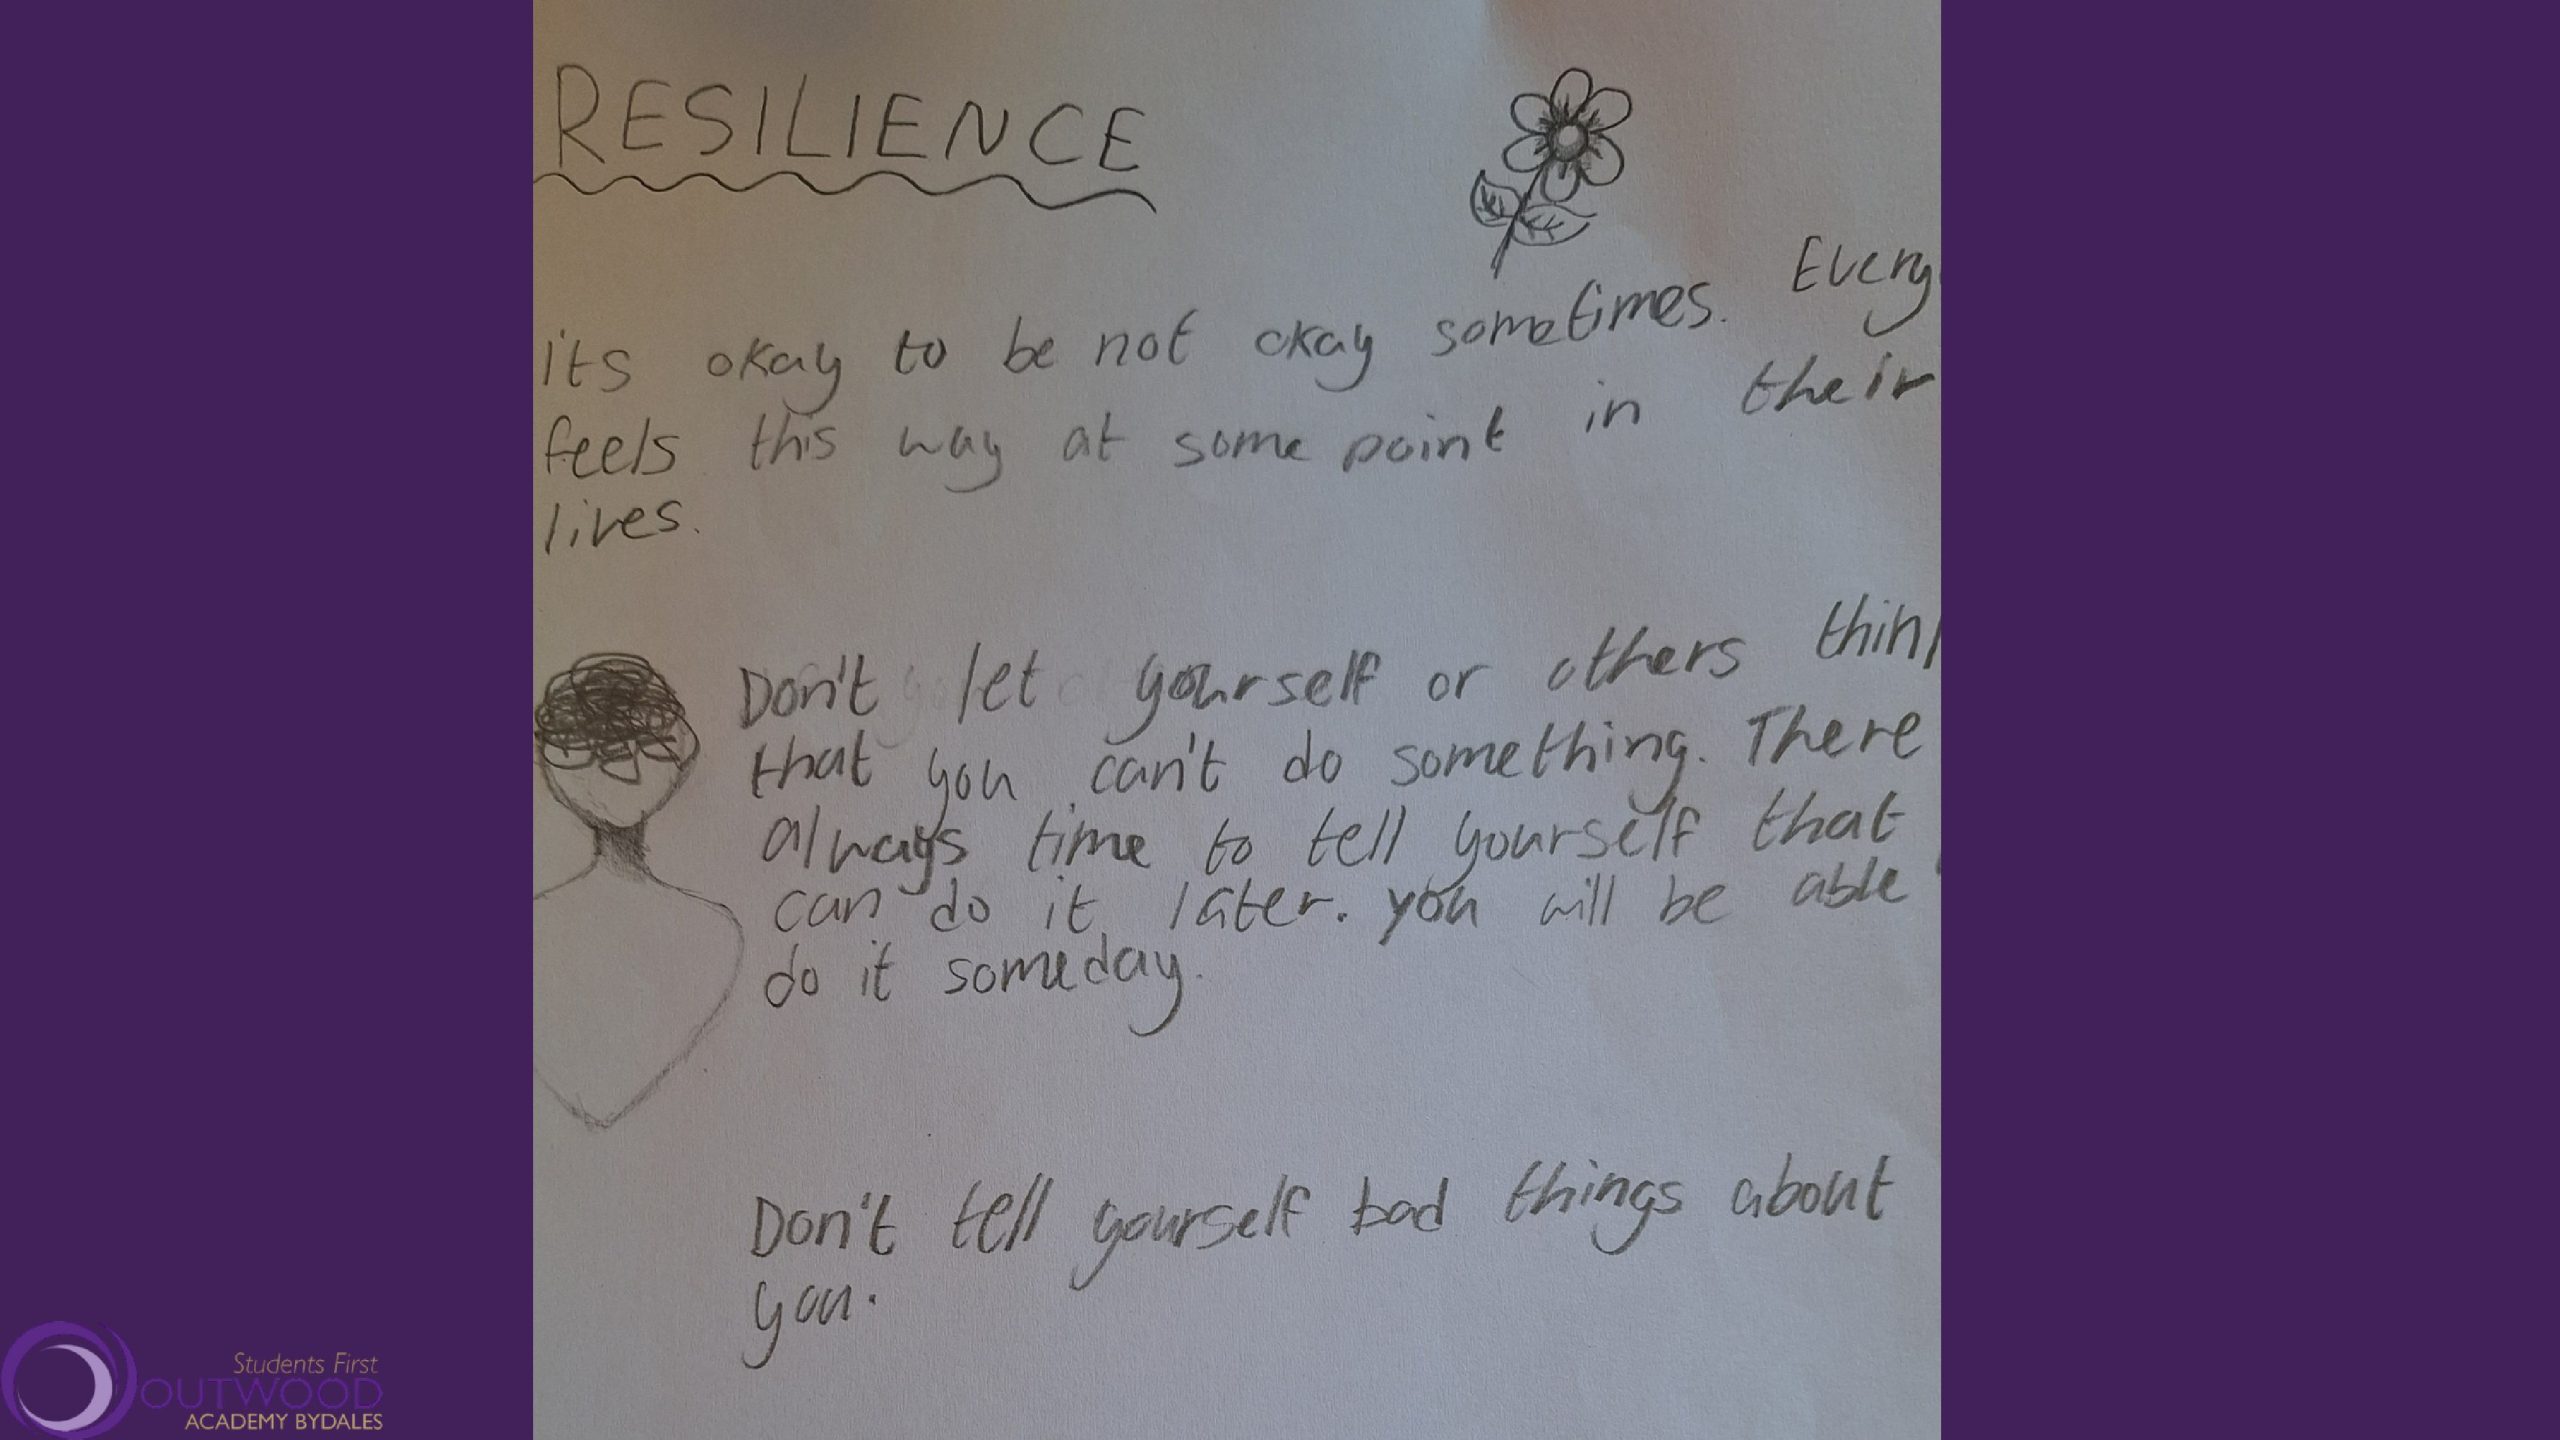 RESILIENCE
its okay to be not okay sometimes. Every
feels this way at some point in their
lives.
Don't let yourself or others thin
that you can't do something. There
always time to tell yourself that
can do it later. you will be able
do it someday.
Don't tell yourself bad things about
you.
Students First
OUTWOOD
ACADEMY BYDALES